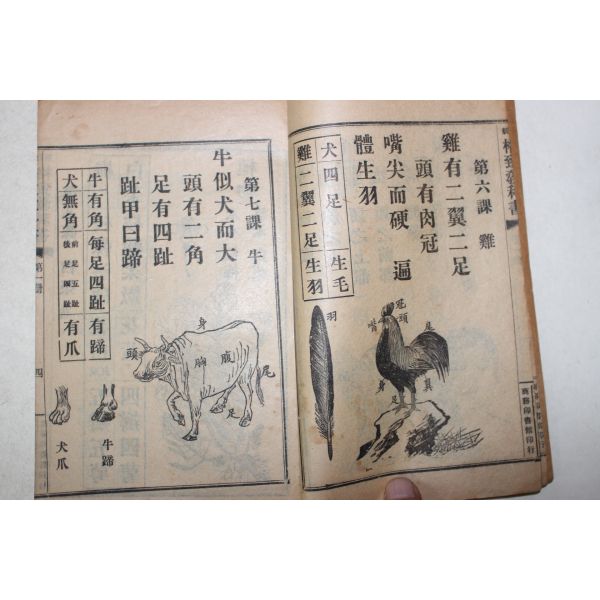 格致教科書
第六課 雞
雞有二翼二足
頭有肉冠
嘴尖而硬 遍
體生羽
犬四足 生毛
雞二翼二足 生羽
羽
冠
頭
嘴
尾
身
翼
足
商務印書館印行
第七課 牛
牛似犬而大
頭有二角
足有四趾
趾甲曰蹄
牛有角 每足四趾 有蹄
犬無角 前足五趾 後足四趾 有爪
身
頭
胸
腹
尾
足
牛蹄
犬爪
第一冊
四